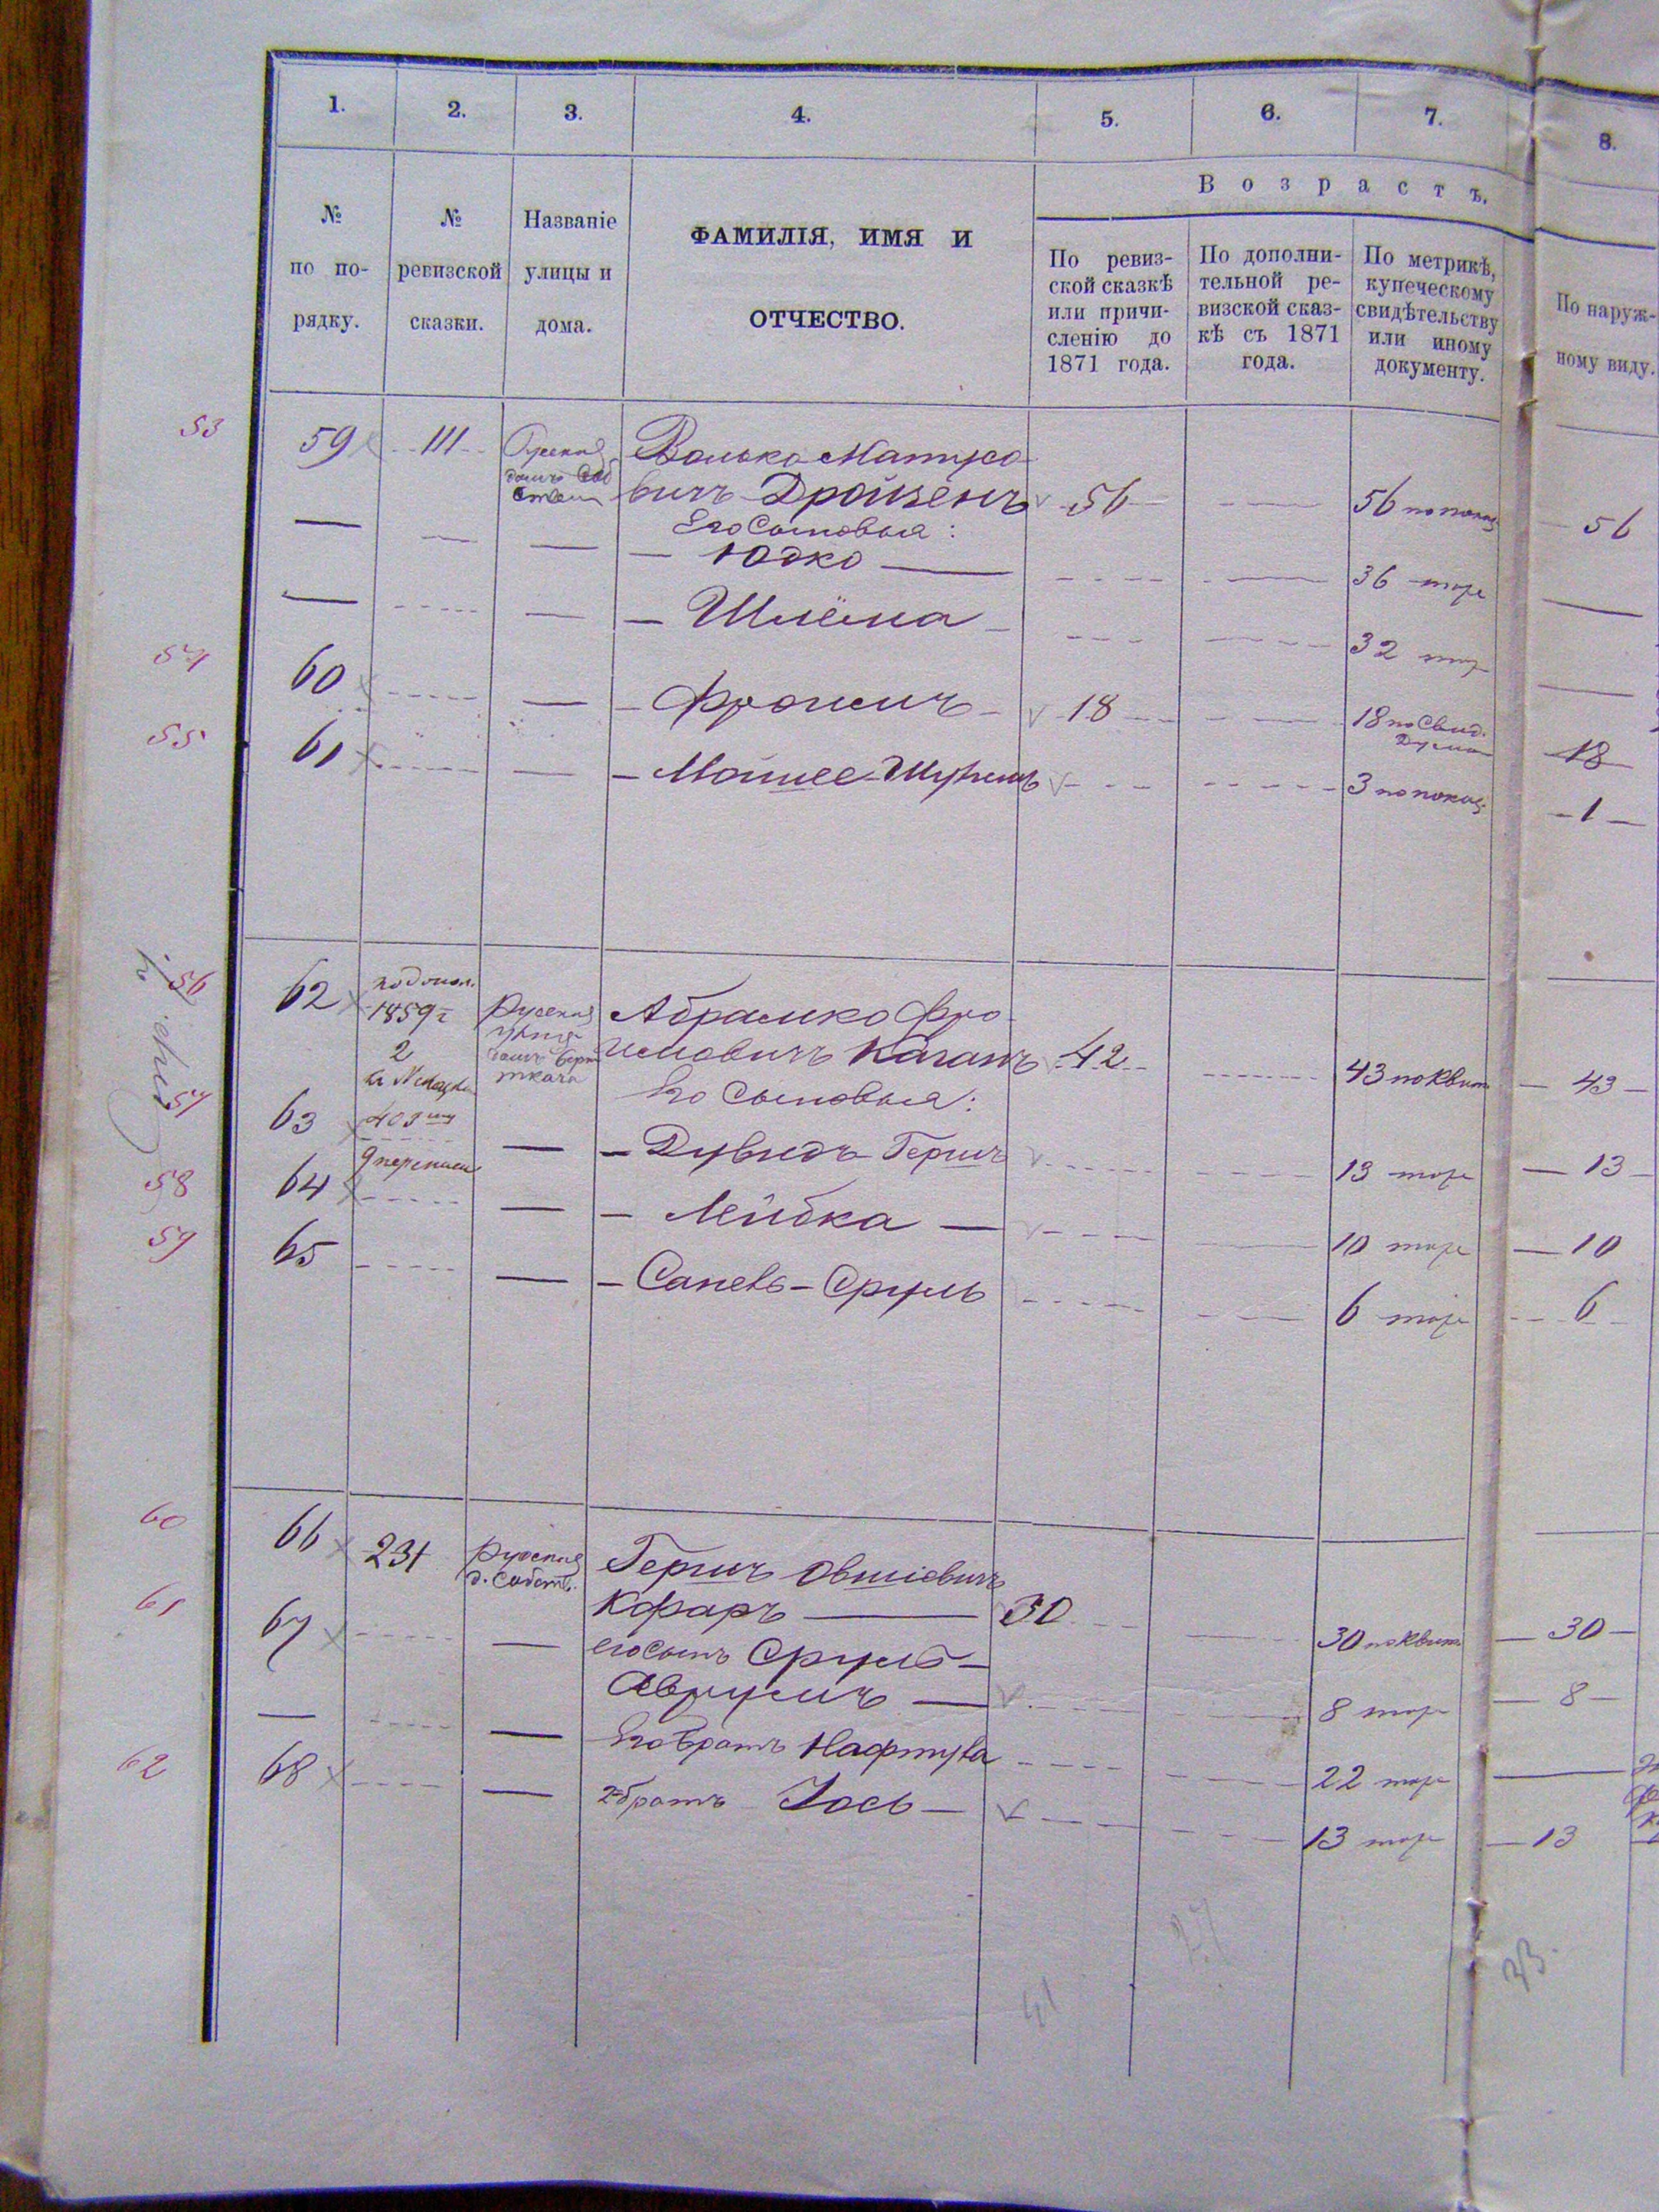 1. 2. 3. 4. 5. 6. 7. 8.
Возрастъ.
№ по по-рядку.
№ ревизской сказки.
Названіе улицы и дома.
ФАМИЛІЯ, ИМЯ И
ОТЧЕСТВО.
По ревиз-
ской сказкѣ
или причи-
сленію до
1871 года.
По дополни-
тельной ре-
визской сказ-
кѣ съ 1871
года.
По метрикѣ,
купеческому
свидѣтельству
или иному
документу.
По наруж-
ному виду.
53 59 111 Русская Волько Матусо-
вичъ 56 56 по показ. 56
Его Сыновья:
Юдко 36 тоже
Шлёма 32 тоже
54 60 Фроимъ 18 18 по Свид. 18
55 61 Мошее 3 по показ. 1
56 62 по допол. 1859 г. Русская Абрамко Фро-
имовичъ Каганъ 42 43 по Квит. 43
Его Сыновья:
57 63 Дувидъ Гершъ 13 тоже 13
58 64 Лейбка 10 тоже 10
59 65 Сруль 6 тоже 6
60 66 231 Русская д. Собств. Гершъ Овшіевичъ
Кофаръ 30 30 по Квит. 30
61 67 его сынъ Сруль-
Аврумъ 8 тоже 8
Его братъ Нафтула 22 тоже
62 68 2 братъ Іось 13 тоже 13